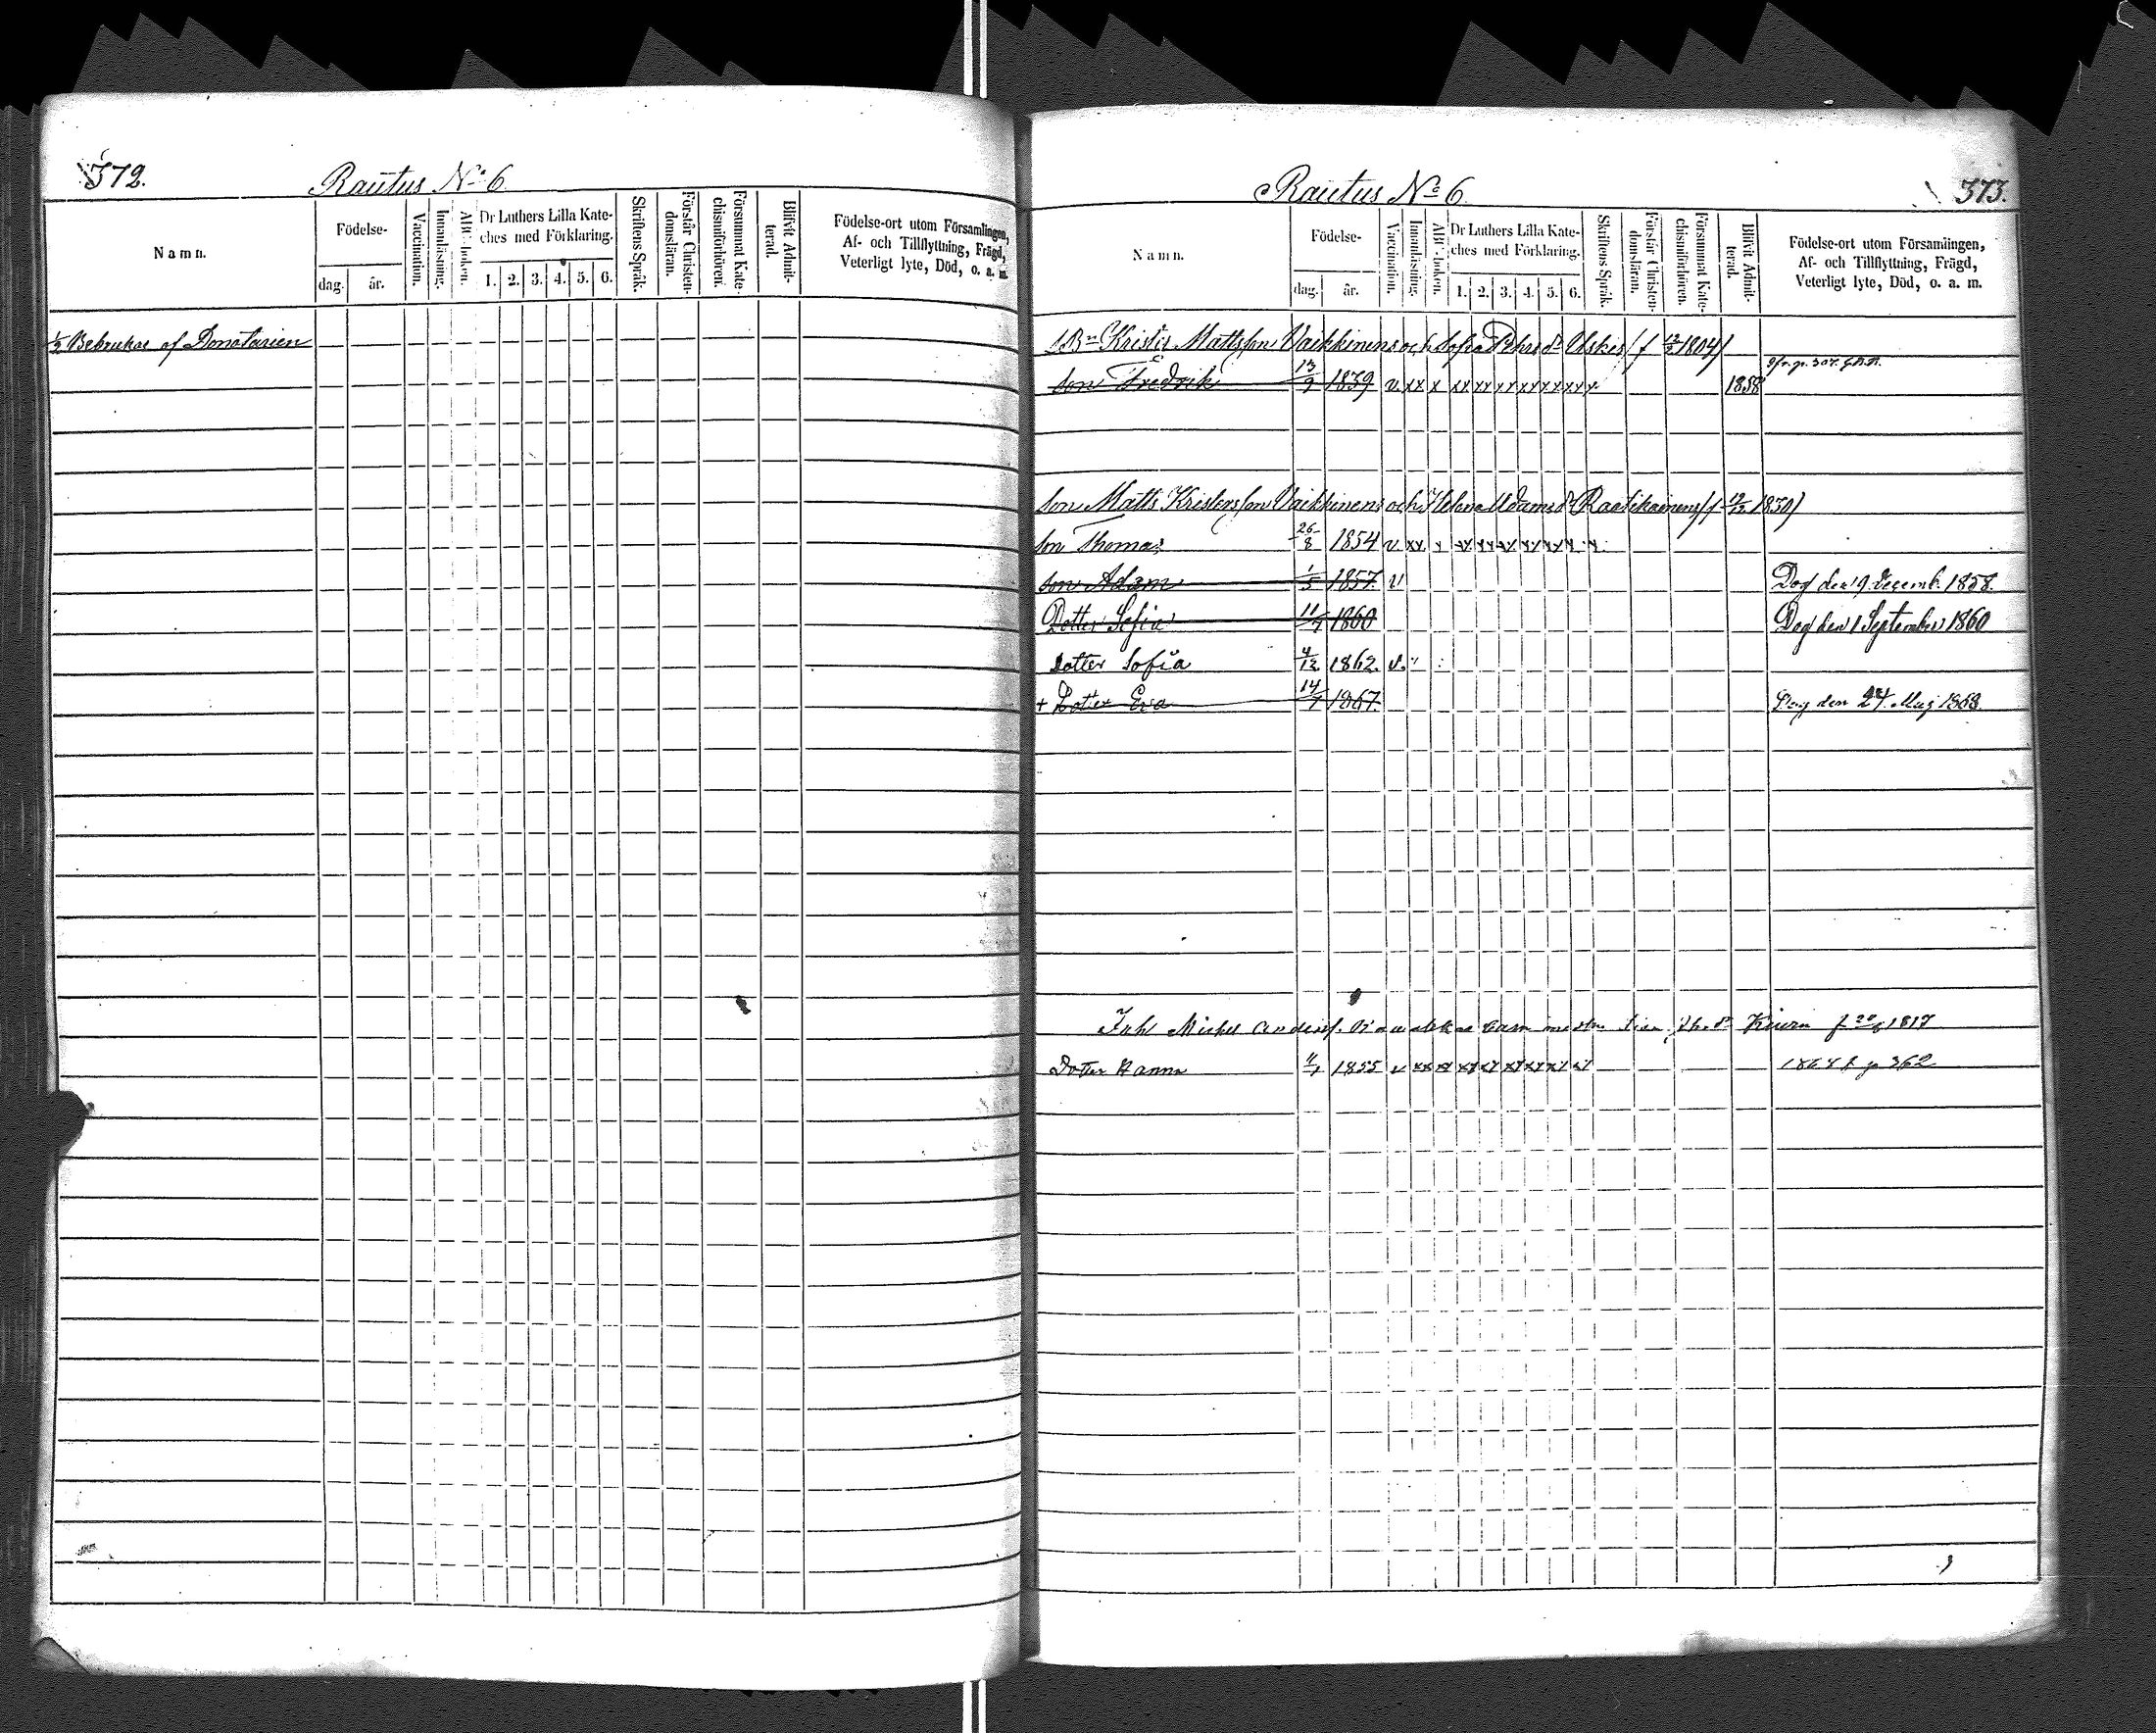 372.
Rautus No 6
Namn.
Födelse-
dag.
år.
Vaccination.
Innanläsning.
ABC-boken.
Dr Luthers Lilla Kate-
ches med Förklaring.
1. 2. 3. 4. 5. 6.
Skriftens Språk.
Förstår Christen-
domsläran.
Försummat Kate-
chismiförhören.
Blifvit Admit-
terad.
Födelse-ort utom Församlingen,
Af- och Tillflyttning, Frägd,
Veterligt lyte, Död, o. a. m.
1/2 Bebrukas af Donatarien
Rautus No 6.
373.
Namn.
Födelse-
dag.
år.
Vaccination.
Innanläsning.
ABC-boken.
Dr Luthers Lilla Kate-
ches med Förklaring.
1. 2. 3. 4. 5. 6.
Skriftens Språk.
Förstår Christen-
domsläran.
Försummat Kate-
chismiförhören.
Blifvit Admit-
terad.
Födelse-ort utom Församlingen,
Af- och Tillflyttning, Frägd,
Veterligt lyte, Död, o. a. m.
Mattsson Vaikkinens och Sofia Pehrs dr Uskis (f 12/2 1804)
son Fredrik 13/9 1839 v xx x xx xx xx xx xx xx 1858
son Matts Kristersson Vaikkinens och Helena Adams dr Raatikainens (f 12/12 1830)
son Thomas 26/8 1854 v xx x xx xx xx xx xx x x
son Adam 1/5 1857. v Dog den 9 Decemb. 1858.
Dotter Sofia 11/7 1860 Dog den 1 September 1860
Dotter Sofia 4/12 1862. v.
+ Dotter Eva 14/7 1867. Dog den 24. Maj 1868.
Michel f 20/6 1817
Dotter Hanna 1855 v xx xx xx xx xx xx xx xx p 362